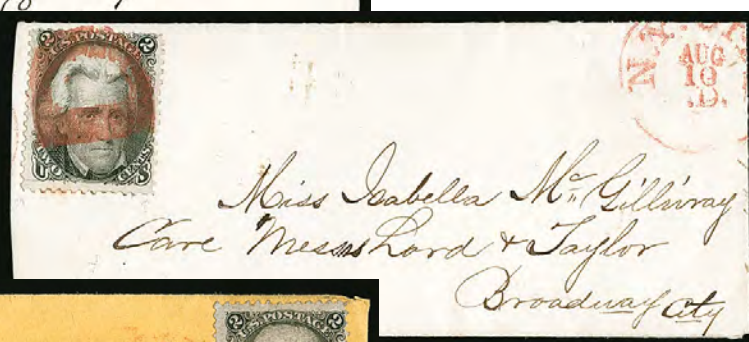 2 U.S. POSTAGE 2
TWO CENTS
U S
N.Y. CITY
AUG
10
.D.
Miss Isabella Mc Gillivray
Care Messrs Lord & Taylor
Broadway City
2 U.S. POSTAGE 2